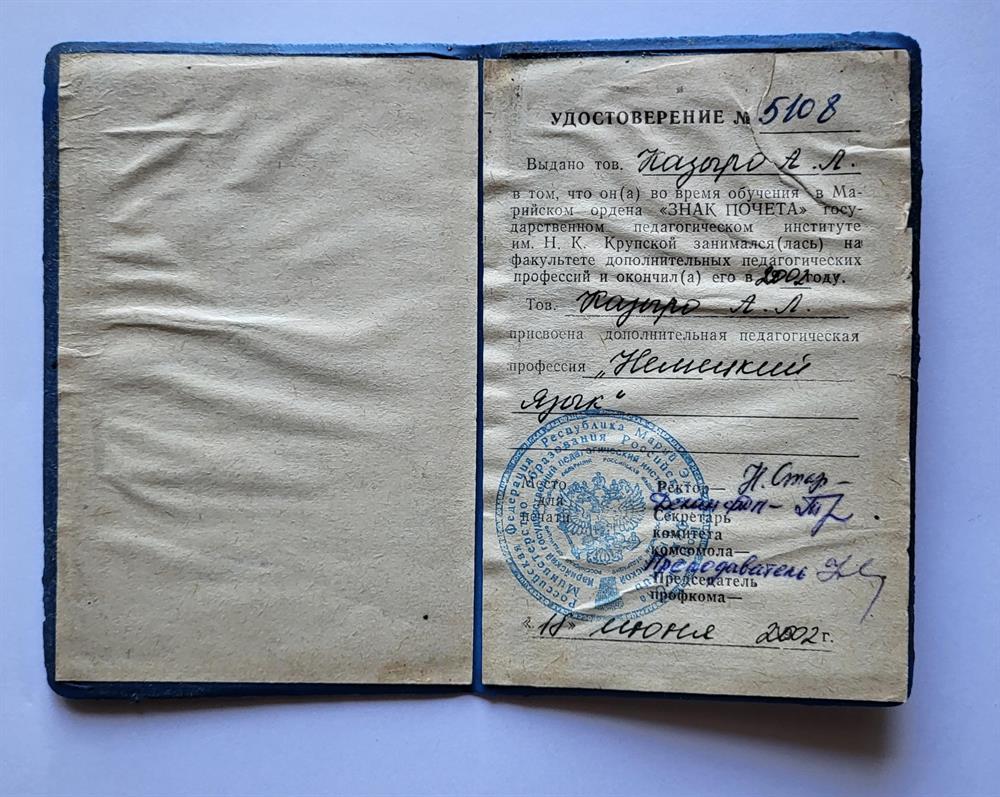 УДОСТОВЕРЕНИЕ № 5108
Выдано тов. Казыро А. Л.
в том, что он(а) во время обучения в Ма-
рийском ордена «ЗНАК ПОЧЕТА» госу-
дарственном педагогическом институте
им. Н. К. Крупской занимался(лась) на
факультете дополнительных педагогических
профессий и окончил(а) его в 2002 году.
Тов. Казыро А. Л.
присвоена дополнительная педагогическая
профессия „Немецкий
язык“
Место
для
печати
Ректор— Н. Стар-
Декан фдп-
Секретарь
комитета
комсомола—
Преподаватель
Председатель
профкома—
«18» июня 2002 г.
Российская Федерация Республика Марий Эл
Министерство образования Российской
Марийский государственный педагогический